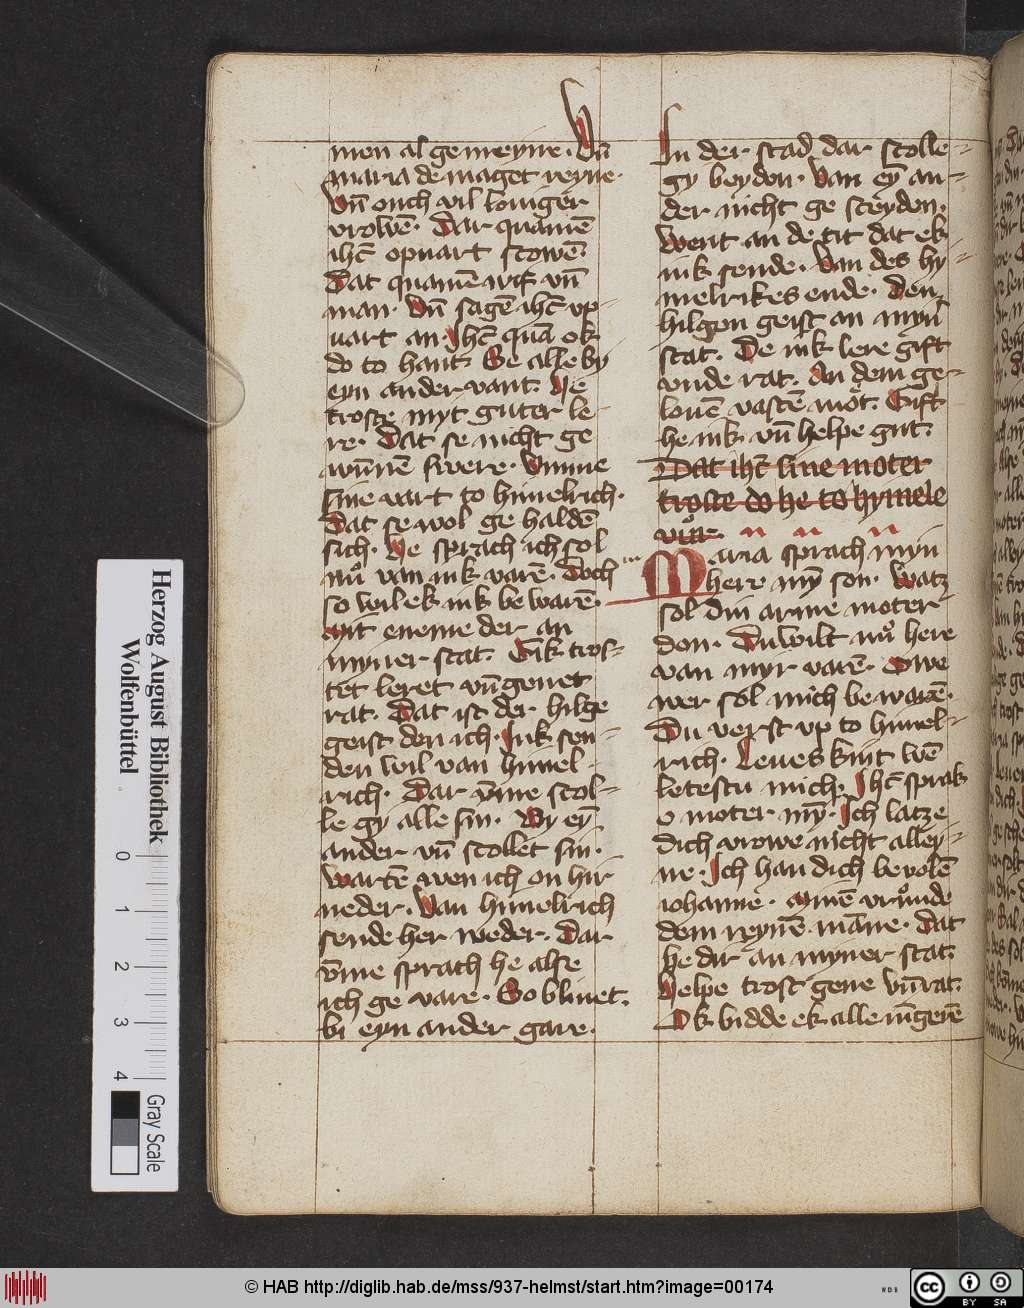 men al gemeyne. Vn̄
maria de maget reyne.
Vn̄ ouch vil louiger
vrowē. Dar quamē
ihc̄ opuart scowē.
Dat quamē wif vn̄
man. Vn̄ sagē ihc̄ vp
uart an. Ihc̄ quā ok
do to hant. Se alse by
eyn ander vant. He
troste myt guter le-
re. Dat se nicht ge
wūnē swere. Vmme
sine vart to himelrich.
Dat se wol ge haldē
sich. He sprach ich sol
nů van iuk varē. Doch
so wil ek iuk be warē.
mit eneme der an
myner stat. Gik tros-
tet leret vn̄ geuet
rat. Dat ist der hilge
geist den ich. Iuk sen-
den wil van himel-
rich. Dar v̄me scol-
le gy alle sin. By eȳ
ander vn̄ scollet sin.
Wartē wen ich on hir
neder. Van himelrich
sende her weder. Dar
v̄me sprach he alse
ich ge vare. So bliuet.
bi eyn ander gare.
In der stad dar scolle-
gy beyden. Van eȳ an-
der nicht ge sceyden.
Went an de tit dat ek
iuk sende. Van des hy-
melrikes ende. Den
hilgen geist an myn
stat. De iuk lere gift
vnde rat. An dem ge-
louē vastē mot. Gift
he iuk vn̄ helpe gut.
Dat ihc̄ sine moter
troste do he to hymele
vůr.
Maria sprach myn
here mȳ son. Watz
sol din arme moter
don. Du wilt nů here
van myr varē. Owe
wer sol mich be warē.
Du verst vp to himel-
rich. Leues kint wē
letestu mich. Ihc̄ sprak
o moter mȳ. Ich latze
dich vrowe nicht alley-
ne. Ich han dich bevolē
iohanne. minē vrůnde
dem reynē māne. Dat
he dir an myner stat.
Helpe trost geue vn̄ rat.
Ok bidde ek alle iūgerē
Herzog August Bibliothek
Wolfenbüttel
0 1 2 3 4
Gray Scale
© HAB http://diglib.hab.de/mss/937-helmst/start.htm?image=00174
WDB
cc BY SA